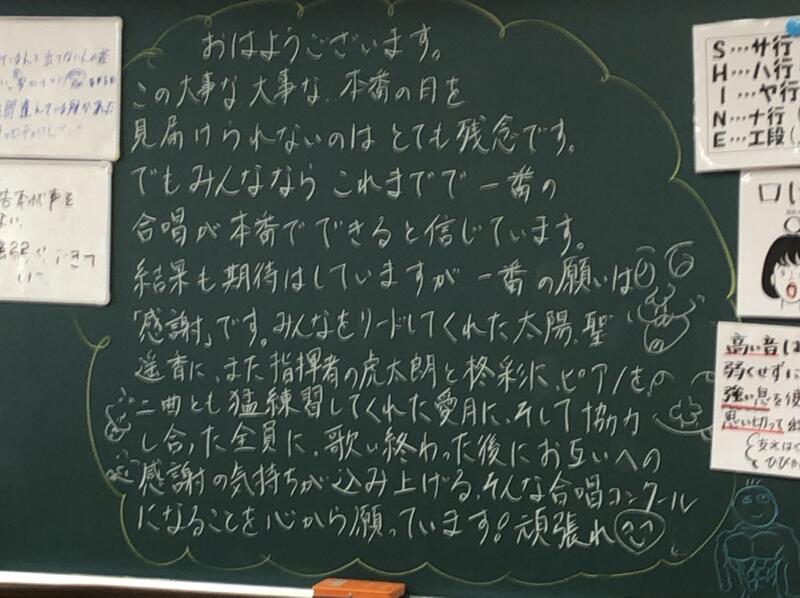 おはようございます。
この大事な、大事な、本番の日を
見届けられないのは とても残念です。
でもみんなならこれまでで一番の
合唱が本番でできると信じています。
結果も期待はしていますが一番の願いは
「感謝」です。みんなをリードしてくれた太陽、聖
遥香に、また指揮者の虎太朗と柊彩に、ピアノを
二曲とも猛練習してくれた愛月に、そして協力
し合った全員に、歌い終わった後にお互いへの
感謝の気持ちが込み上げる、そんな合唱コンクール
になることを心から願っています!頑張れ
S…サ行
H…ハ行
I…ヤ行
N…ナ行
E…エ段
高い音は
弱くせずに
強い息を使
思い切って